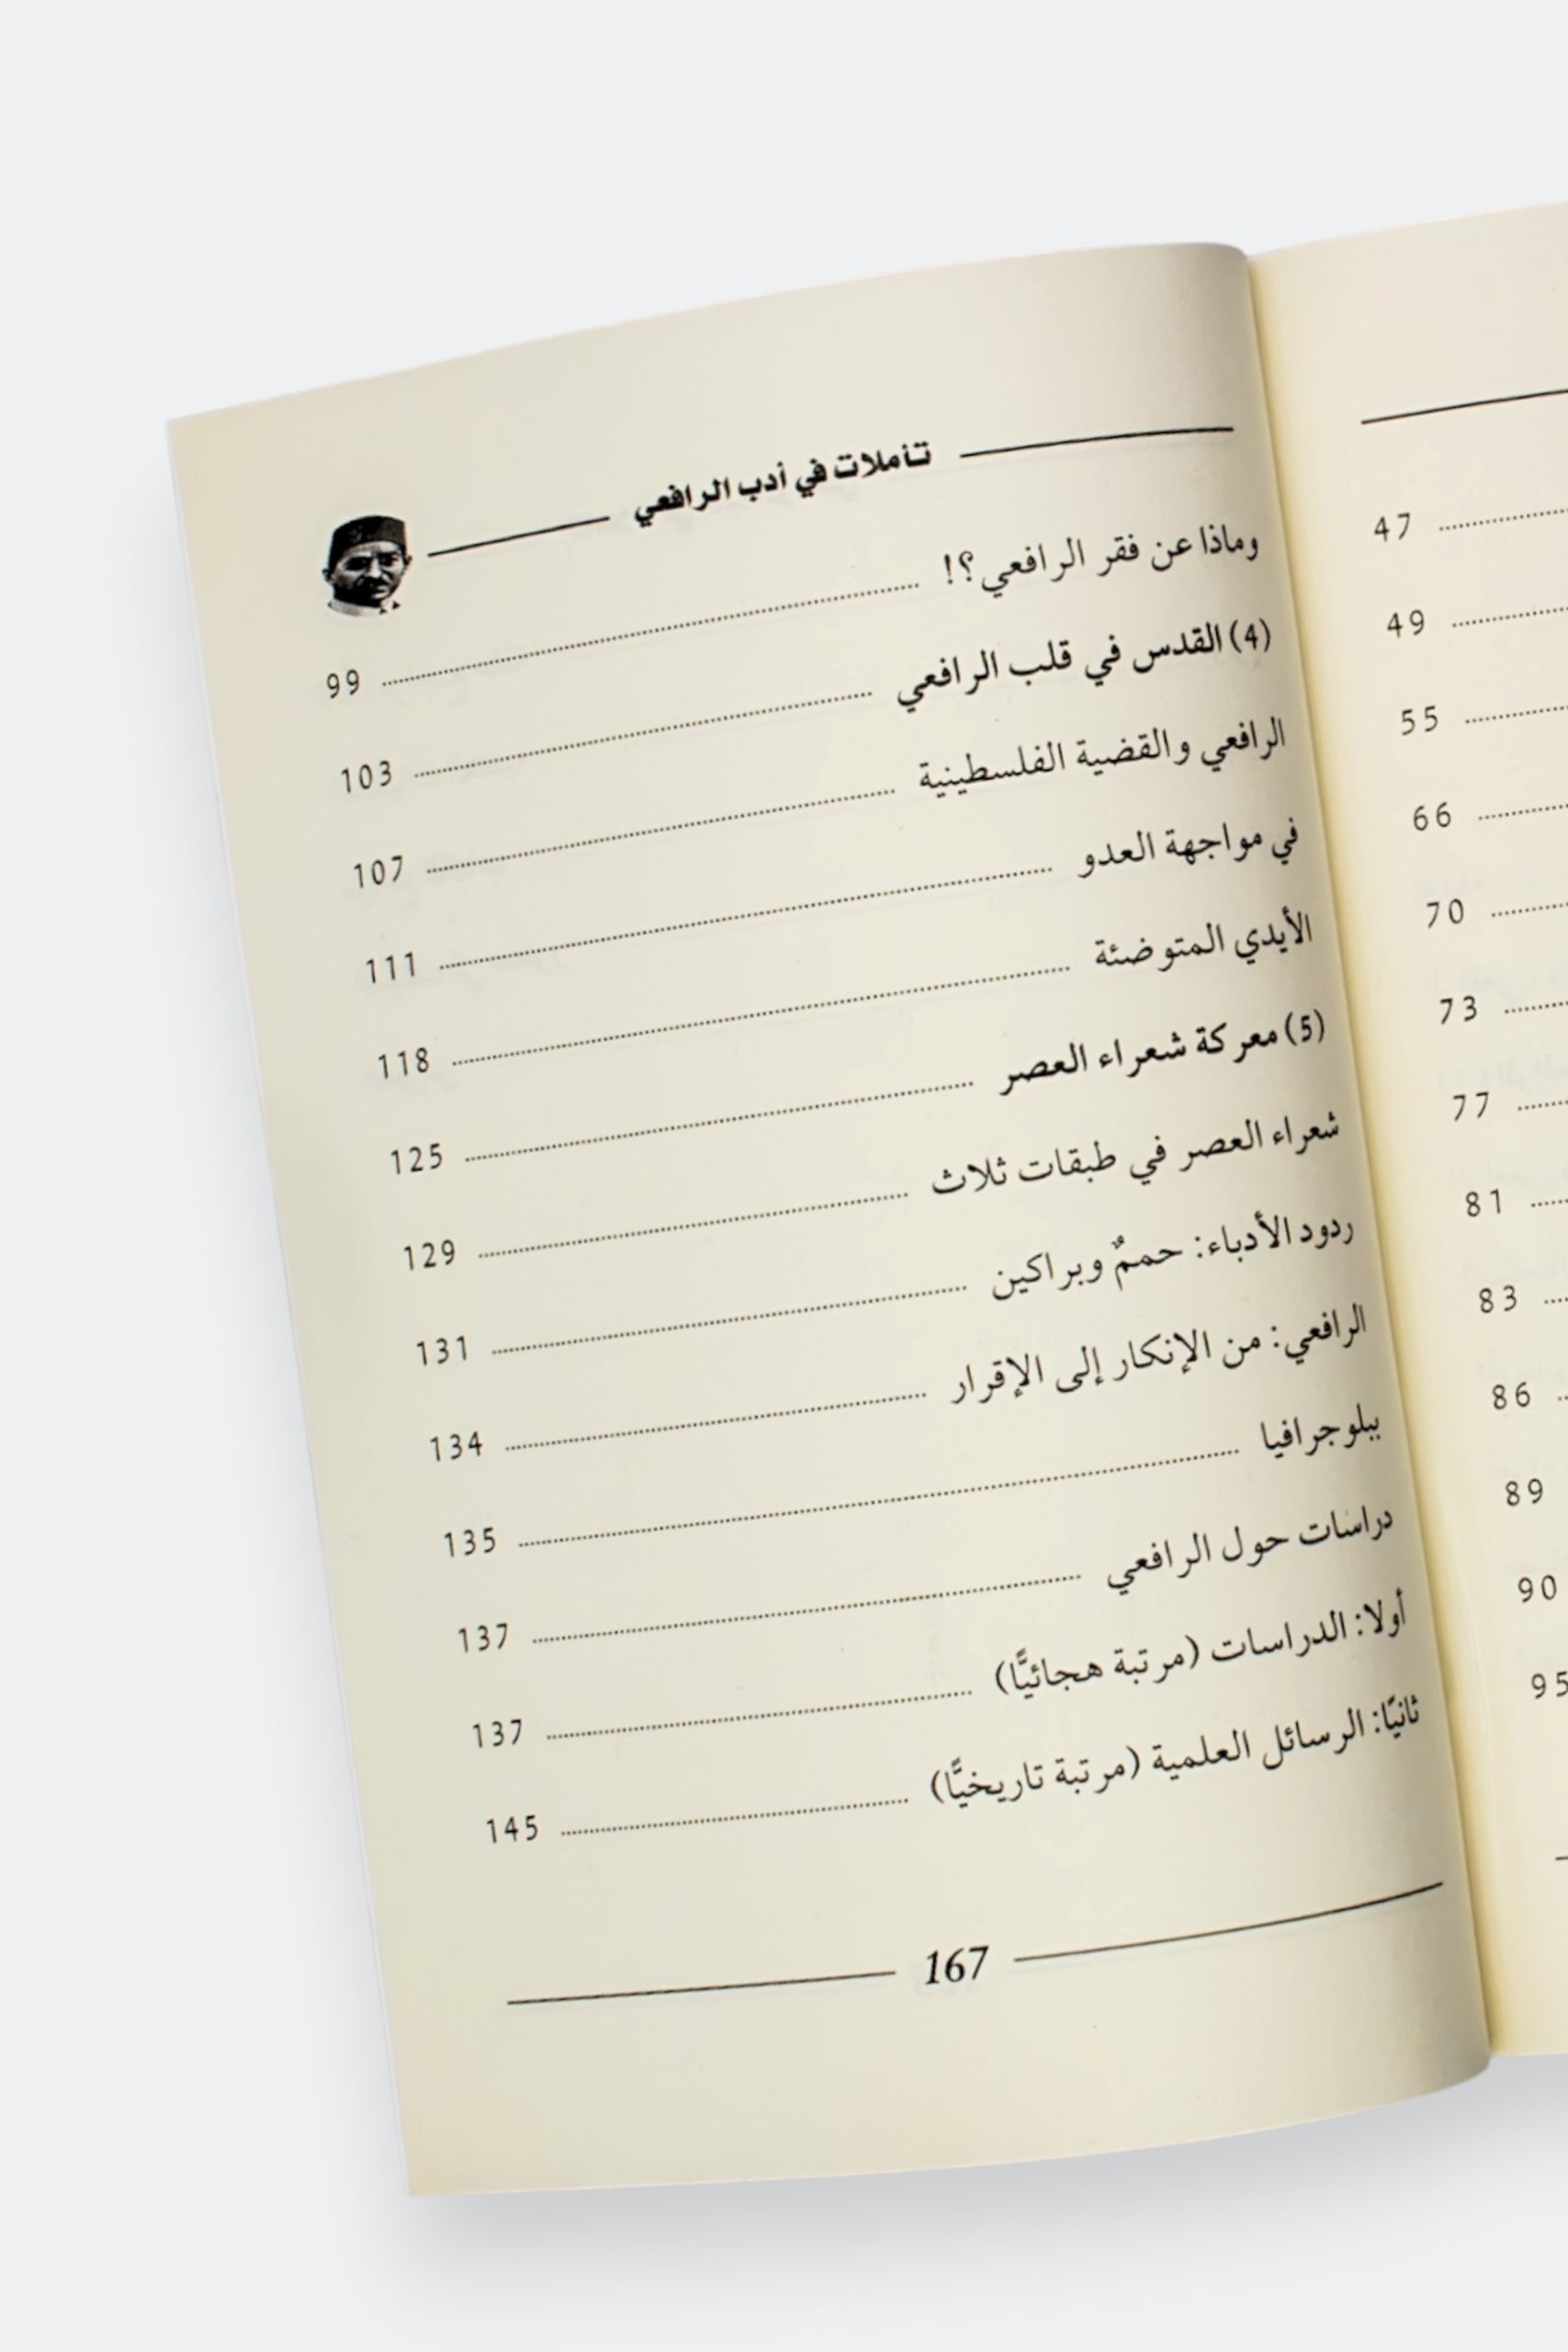 تأملات في أدب الرافعي
وماذا عن فقر الرافعي؟! 99
(4) القدس في قلب الرافعي 103
الرافعي والقضية الفلسطينية 107
في مواجهة العدو 111
الأيدي المتوضئة 118
(5) معركة شعراء العصر 125
شعراء العصر في طبقات ثلاث 129
ردود الأدباء: حممٌ وبراكين 131
الرافعي: من الإنكار إلى الإقرار 134
ببلوجرافيا 135
دراسات حول الرافعي 137
أولا: الدراسات (مرتبة هجائيًّا) 137
ثانيًا: الرسائل العلمية (مرتبة تاريخيًّا) 145
167
47
49
55
66
70
73
77
81
83
86
89
90
95